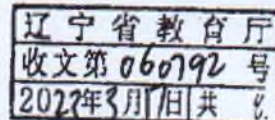 辽宁省教育厅
收文第060792号
2022年3月 日共